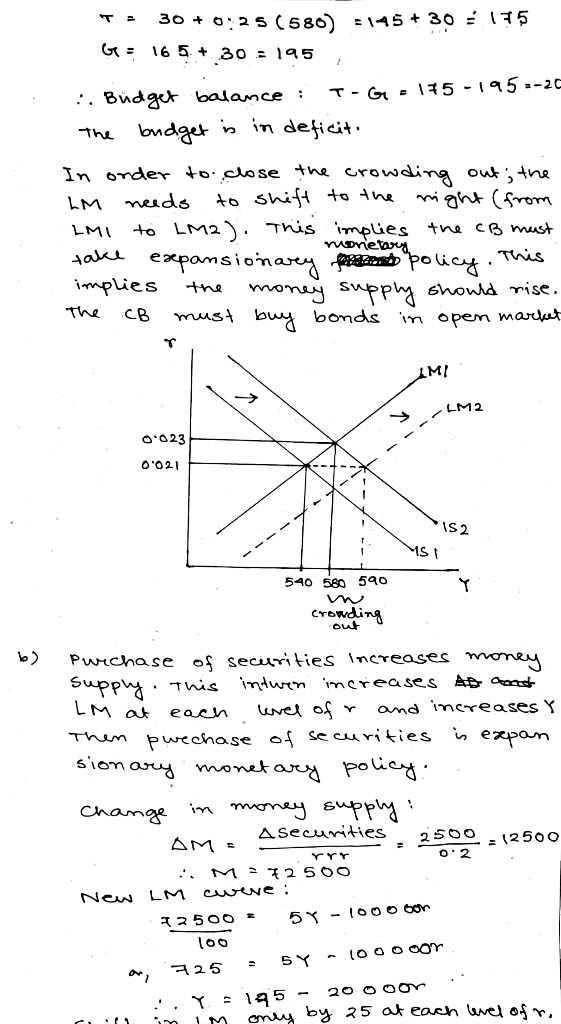 T = 30 + 0.25 (580) = 145 + 30 = 175
G = 165 + 30 = 195
∴ Budget balance : T - G = 175 - 195 = -20
The budget is in deficit.
In order to close the crowding out, the
LM needs to shift to the right (from
LM1 to LM2). This implies the CB must
take expansionary monetary policy. This
implies the money supply should rise.
The CB must buy bonds in open market
r
LM1
LM2
0.023
0.021
IS2
IS1
540 580 590 Y
crowding
out
b) Purchase of securities increases money
supply. This inturn increases
LM at each level of r and increases Y
Then purchase of securities is expan
sionary monetary policy.
Change in money supply :
ΔM = Δsecurities / rrr = 2500 / 0.2 = 12500
∴ M = 72500
New LM curve :
72500 / 100 = 5Y - 100000r
or, 725 = 5Y - 100000r
∴ Y = 145 - 20000r
in LM only by 25 at each level of r,